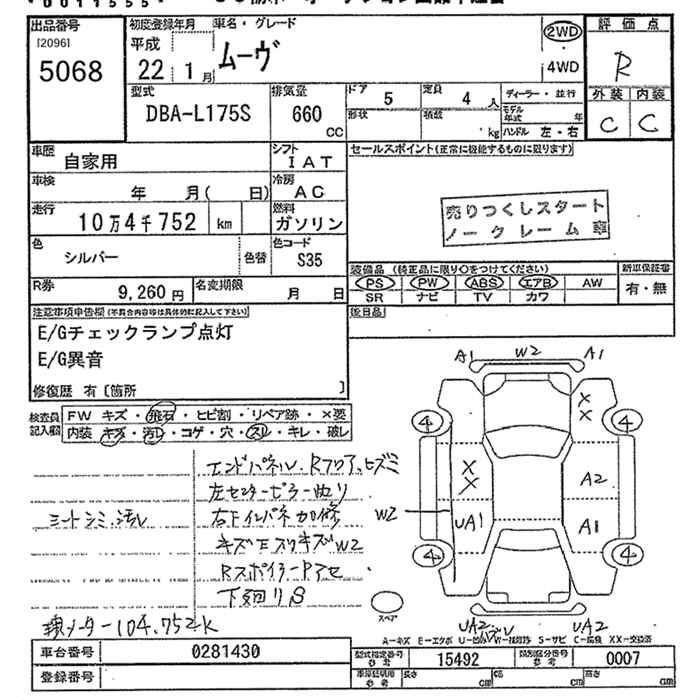 出品番号
[2096]
5068
初度登録年月
平成
22 1月
車名・グレード
ムーヴ
2WD
・
4WD
評価点
R
外装 内装
C C
型式
DBA-L175S
排気量
660
CC
ドア 5
定員 4人
ディーラー・並行
形状
積載 ・kg
モデル年式 年
ハンドル 左・右
車歴
自家用
シフト
IAT
車検
年 月( 日)
冷房
AC
走行
10万4千752 km
燃料
ガソリン
色
シルバー
色替
色コード
S35
R券
9,260円
名変期限
月 日
セールスポイント(正常に機能するものに限ります)
売りつくしスタート
ノークレーム車
装備品 (純正品に限り○をつけてください)
新車保証書
PS PW ABS エアB AW
SR ナビ TV カワ
有・無
後日品
注意事項申告欄(不具合内容等は具体的に記入して下さい)
E/Gチェックランプ点灯
E/G異音
修復歴 有〔箇所 〕
検査員記入欄
FW キズ・飛石・ヒビ割・リペア跡・×要
内装・キズ・汚レ・コゲ・穴・スレ・キレ・破レ
エンドパネル、Rフロア、ヒズミ
左センターピラー曲り
シートシミ、汚レ
右下インパネ加修
W2
Rスポイラー
下廻りS
104.752K
A1 W2 A1
4 4
× ×
× ×
A2
W2
UA1
A1
4 4
スペア
UA2 UA2
A-キズ E-エクボ
S-サビ
XX-交換済
車台番号 0281430
登録番号
型式指定番号 参考 15492
類別区分番号 参考 0007
長さ cm
幅 cm
高さ cm